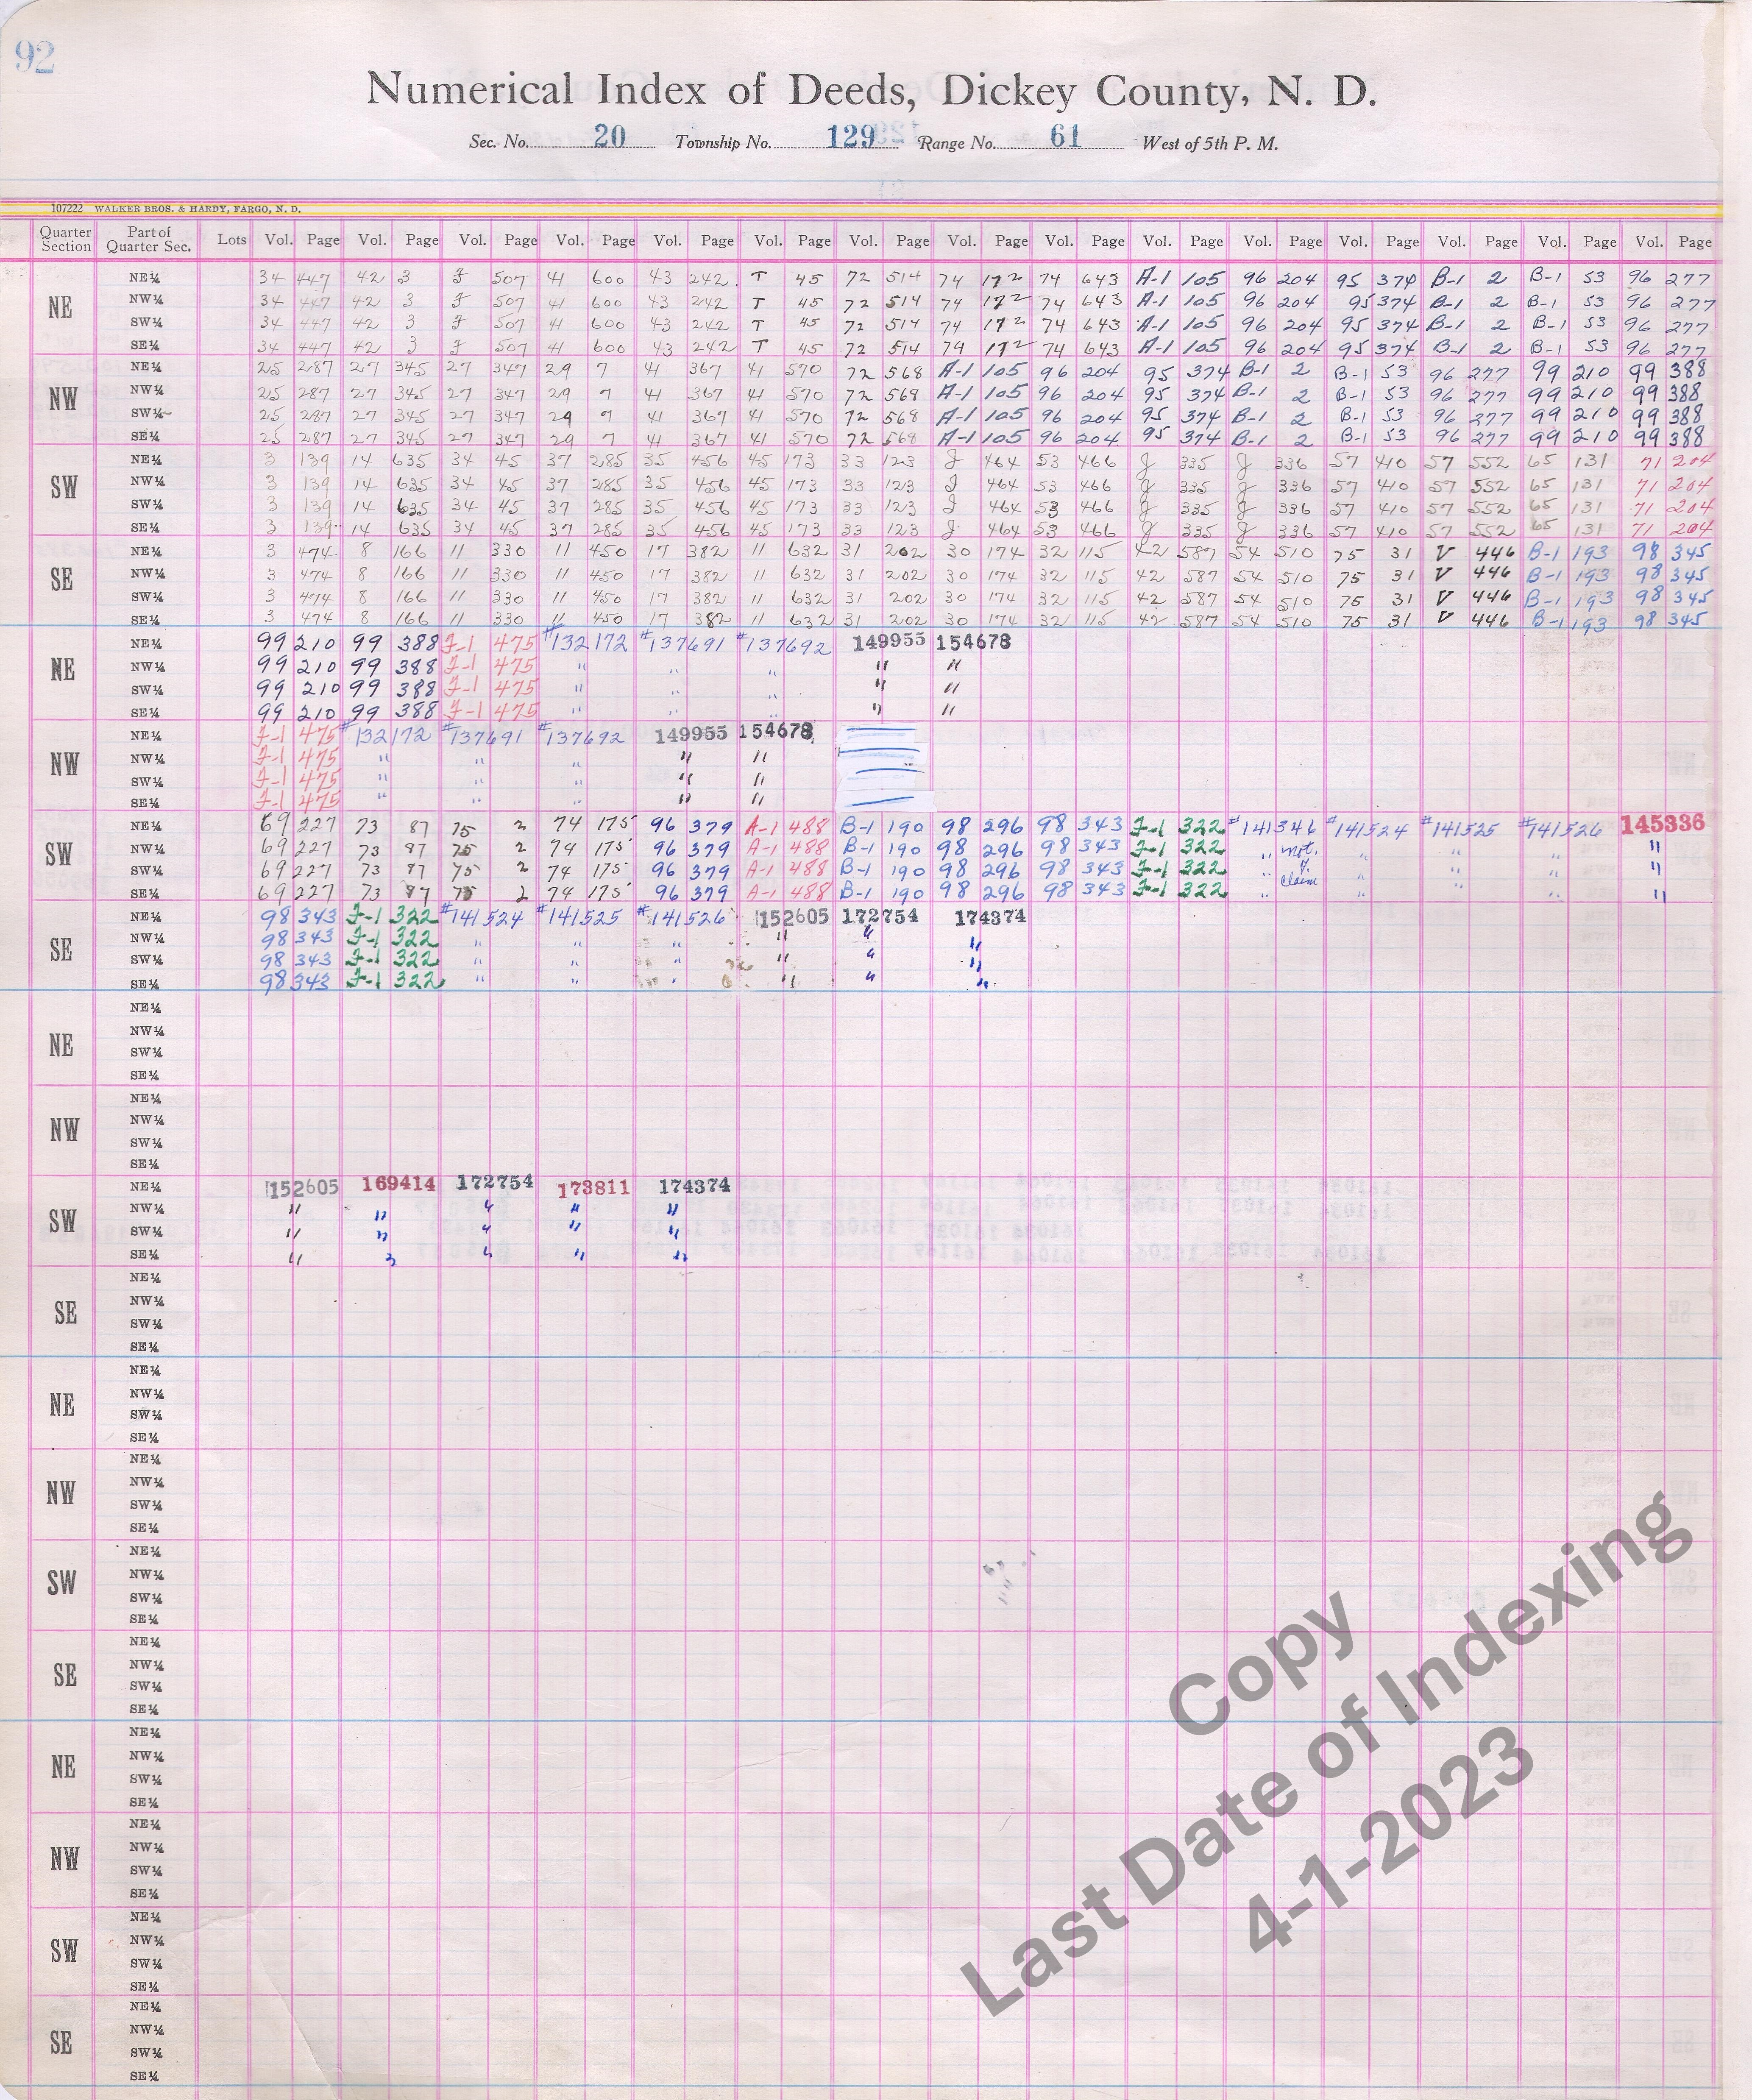 92
Numerical Index of Deeds, Dickey County, N. D.
Sec. No. 20 Township No. 129 Range No. 61 West of 5th P. M.
107222 WALKER BROS. & HARDY, FARGO, N. D.
Quarter Section Part of Quarter Sec. Lots Vol. Page Vol. Page Vol. Page Vol. Page Vol. Page Vol. Page Vol. Page Vol. Page Vol. Page Vol. Page Vol. Page Vol. Page Vol. Page Vol. Page Vol. Page
NE
NE¼ 34 447 42 3 F 507 41 600 43 242 T 45 72 514 74 172 74 643 A-1 105 96 204 95 374 B-1 2 B-1 53 96 277
NW¼ 34 447 42 3 F 507 41 600 43 242 T 45 72 514 74 172 74 643 A-1 105 96 204 95 374 B-1 2 B-1 53 96 277
SW¼ 34 447 42 3 F 507 41 600 43 242 T 45 72 514 74 172 74 643 A-1 105 96 204 95 374 B-1 2 B-1 53 96 277
SE¼ 34 447 42 3 F 507 41 600 43 242 T 45 72 514 74 172 74 643 A-1 105 96 204 95 374 B-1 2 B-1 53 96 277
NW
NE¼ 25 287 27 345 27 347 29 7 41 367 41 570 72 568 A-1 105 96 204 95 374 B-1 2 B-1 53 96 277 99 210 99 388
NW¼ 25 287 27 345 27 347 29 7 41 367 41 570 72 568 A-1 105 96 204 95 374 B-1 2 B-1 53 96 277 99 210 99 388
SW¼ 25 287 27 345 27 347 29 7 41 367 41 570 72 568 A-1 105 96 204 95 374 B-1 2 B-1 53 96 277 99 210 99 388
SE¼ 25 287 27 345 27 347 29 7 41 367 41 570 72 568 A-1 105 96 204 95 374 B-1 2 B-1 53 96 277 99 210 99 388
SW
NE¼ 3 139 14 635 34 45 37 285 35 456 45 173 33 123 J 464 53 466 J 335 J 336 57 410 57 552 65 131 71 204
NW¼ 3 139 14 635 34 45 37 285 35 456 45 173 33 123 J 464 53 466 J 335 J 336 57 410 57 552 65 131 71 204
SW¼ 3 139 14 635 34 45 37 285 35 456 45 173 33 123 J 464 53 466 J 335 J 336 57 410 57 552 65 131 71 204
SE¼ 3 139 14 635 34 45 37 285 35 456 45 173 33 123 J 464 53 466 J 335 J 336 57 410 57 552 65 131 71 204
SE
NE¼ 3 474 8 166 11 330 11 450 17 382 11 632 31 202 30 174 32 115 42 587 54 510 75 31 V 446 B-1 193 98 345
NW¼ 3 474 8 166 11 330 11 450 17 382 11 632 31 202 30 174 32 115 42 587 54 510 75 31 V 446 B-1 193 98 345
SW¼ 3 474 8 166 11 330 11 450 17 382 11 632 31 202 30 174 32 115 42 587 54 510 75 31 V 446 B-1 193 98 345
SE¼ 3 474 8 166 11 330 11 450 17 382 11 632 31 202 30 174 32 115 42 587 54 510 75 31 V 446 B-1 193 98 345
NE
NE¼ 99 210 99 388 F-1 475 #132172 #137691 #137692 149955 154678
NW¼ 99 210 99 388 F-1 475 " " " " "
SW¼ 99 210 99 388 F-1 475 " " " " "
SE¼ 99 210 99 388 F-1 475 " " " " "
NW
NE¼ F-1 475 #132172 #137691 #137692 149955 154678
NW¼ F-1 475 " " " " "
SW¼ F-1 475 " " " " "
SE¼ F-1 475 " " " " "
SW
NE¼ 69 227 73 87 75 2 74 175 96 379 A-1 488 B-1 190 98 296 98 343 F-1 322 #141346 #141524 #141525 #141526 145336
NW¼ 69 227 73 87 75 2 74 175 96 379 A-1 488 B-1 190 98 296 98 343 F-1 322 " not. " " " "
SW¼ 69 227 73 87 75 2 74 175 96 379 A-1 488 B-1 190 98 296 98 343 F-1 322 " of " " " "
SE¼ 69 227 73 87 75 2 74 175 96 379 A-1 488 B-1 190 98 296 98 343 F-1 322 " claim " " " "
SE
NE¼ 98 343 F-1 322 #141524 #141525 #141526 152605 172754 174374
NW¼ 98 343 F-1 322 " " " " " "
SW¼ 98 343 F-1 322 " " " " " "
SE¼ 98 343 F-1 322 " " " " " "
NE
NE¼
NW¼
SW¼
SE¼
NW
NE¼
NW¼
SW¼
SE¼
SW
NE¼ 152605 169414 172754 173811 174374
NW¼ " " " " "
SW¼ " " " " "
SE¼ " " " " "
SE
NE¼
NW¼
SW¼
SE¼
NE
NE¼
NW¼
SW¼
SE¼
NW
NE¼
NW¼
SW¼
SE¼
SW
NE¼
NW¼
SW¼
SE¼
SE
NE¼
NW¼
SW¼
SE¼
NE
NE¼
NW¼
SW¼
SE¼
NW
NE¼
NW¼
SW¼
SE¼
SW
NE¼
NW¼
SW¼
SE¼
SE
NE¼
NW¼
SW¼
SE¼
Copy
Last Date of Indexing
4-1-2023